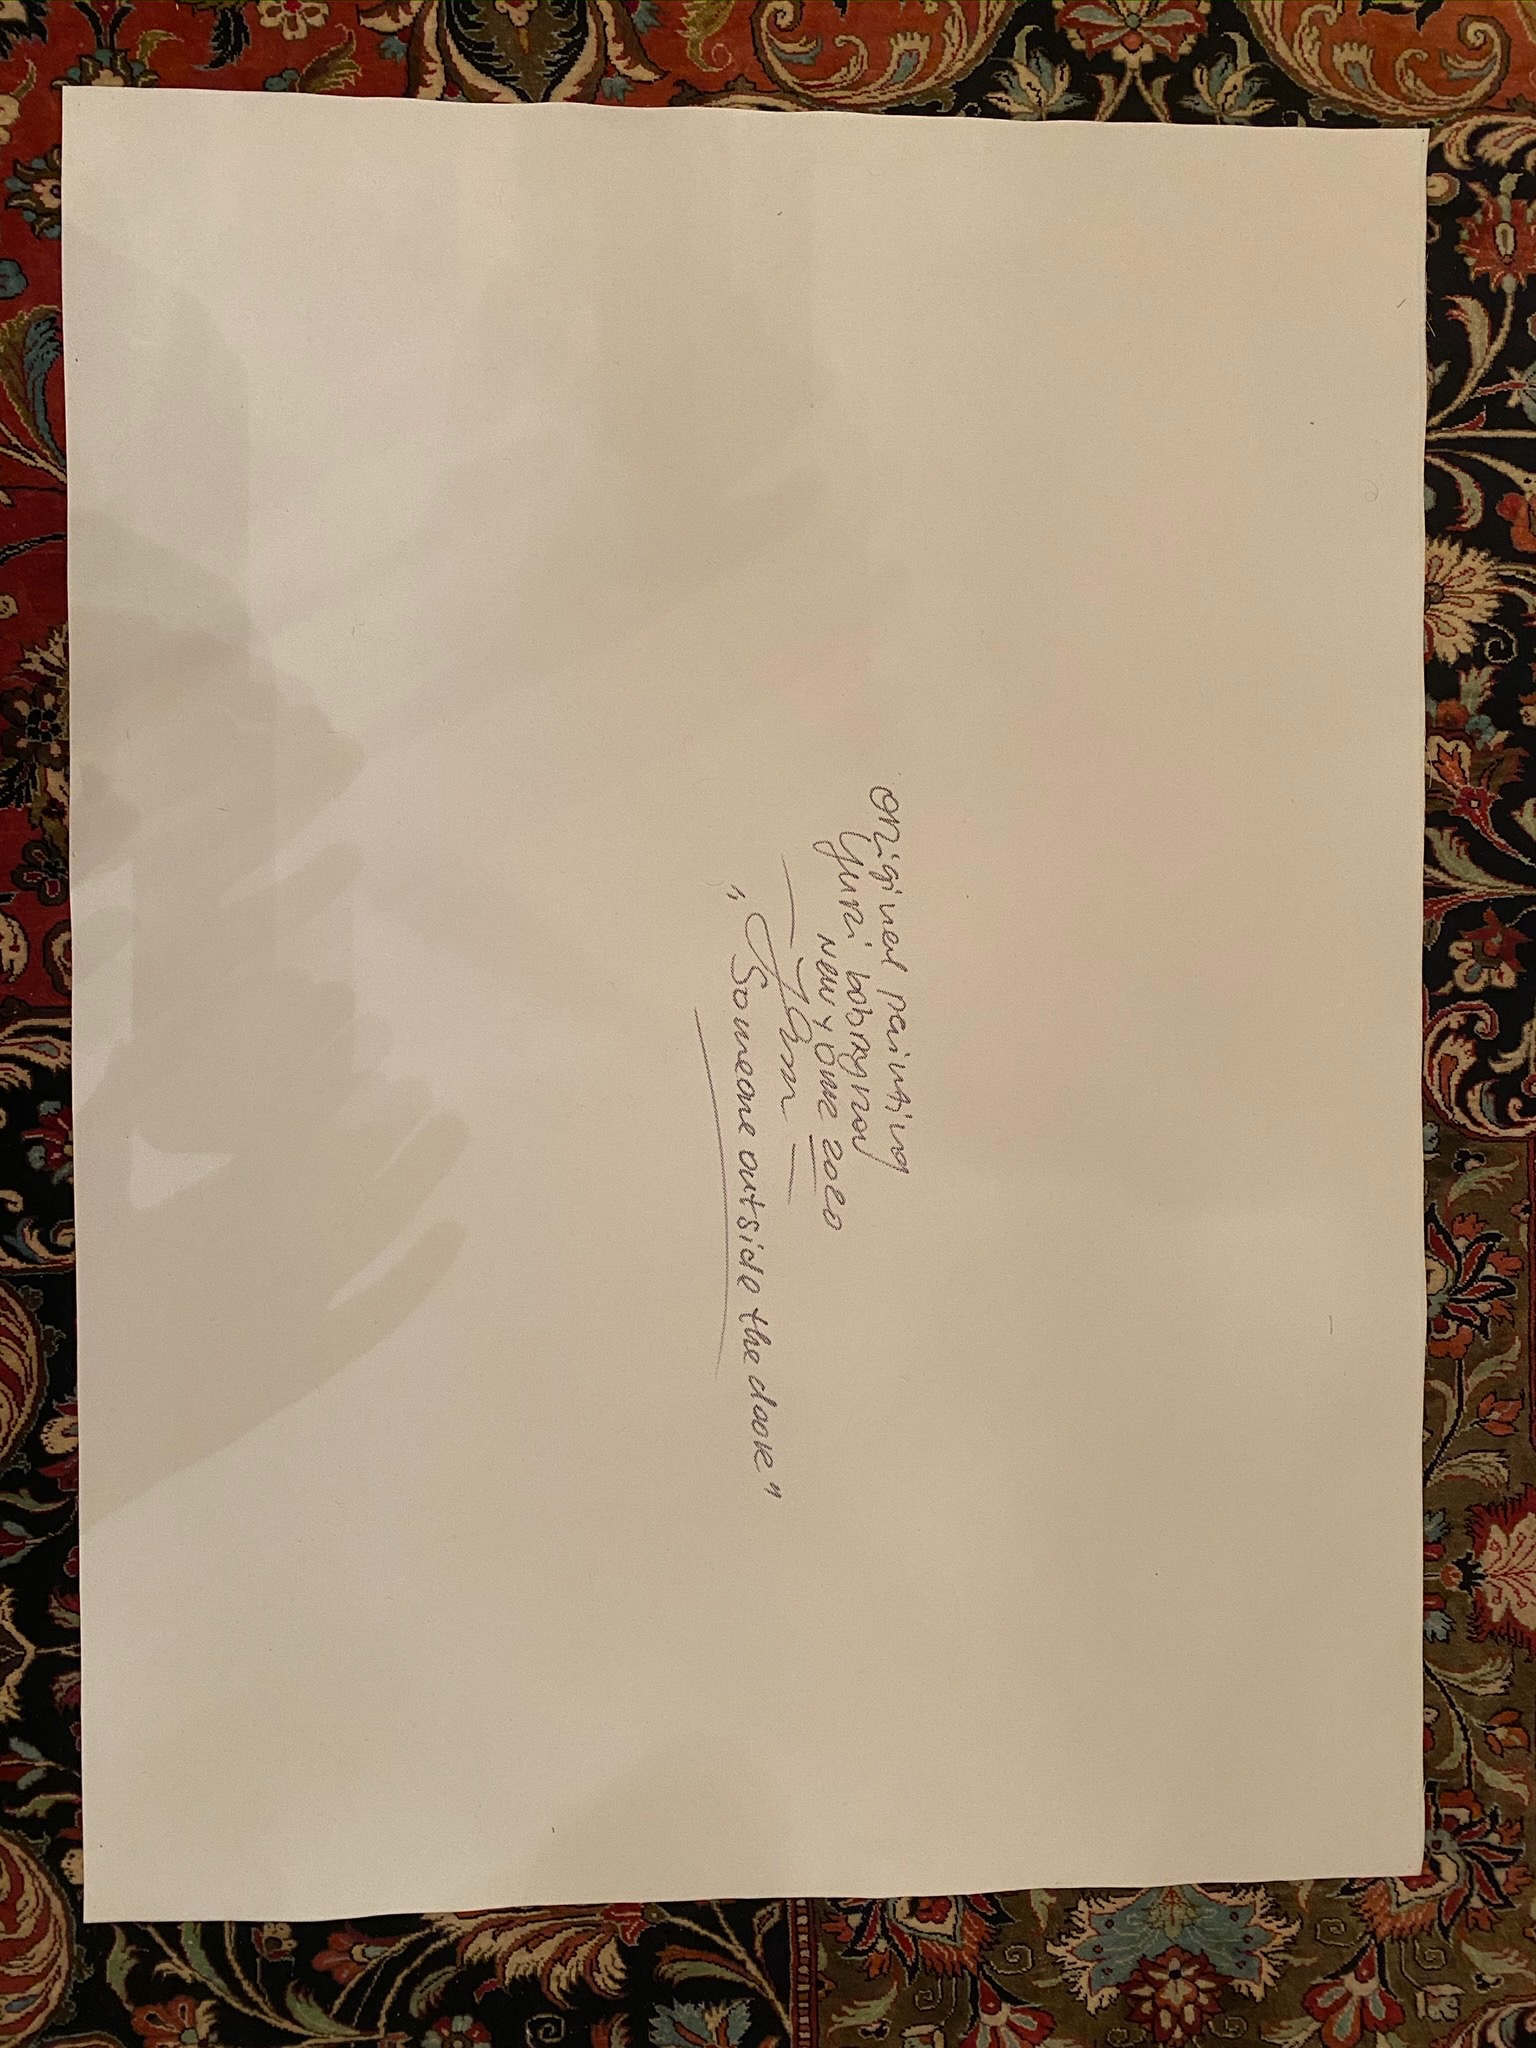 original painting
Yuri bobryrov
New York 2020
„Someone outside the door"